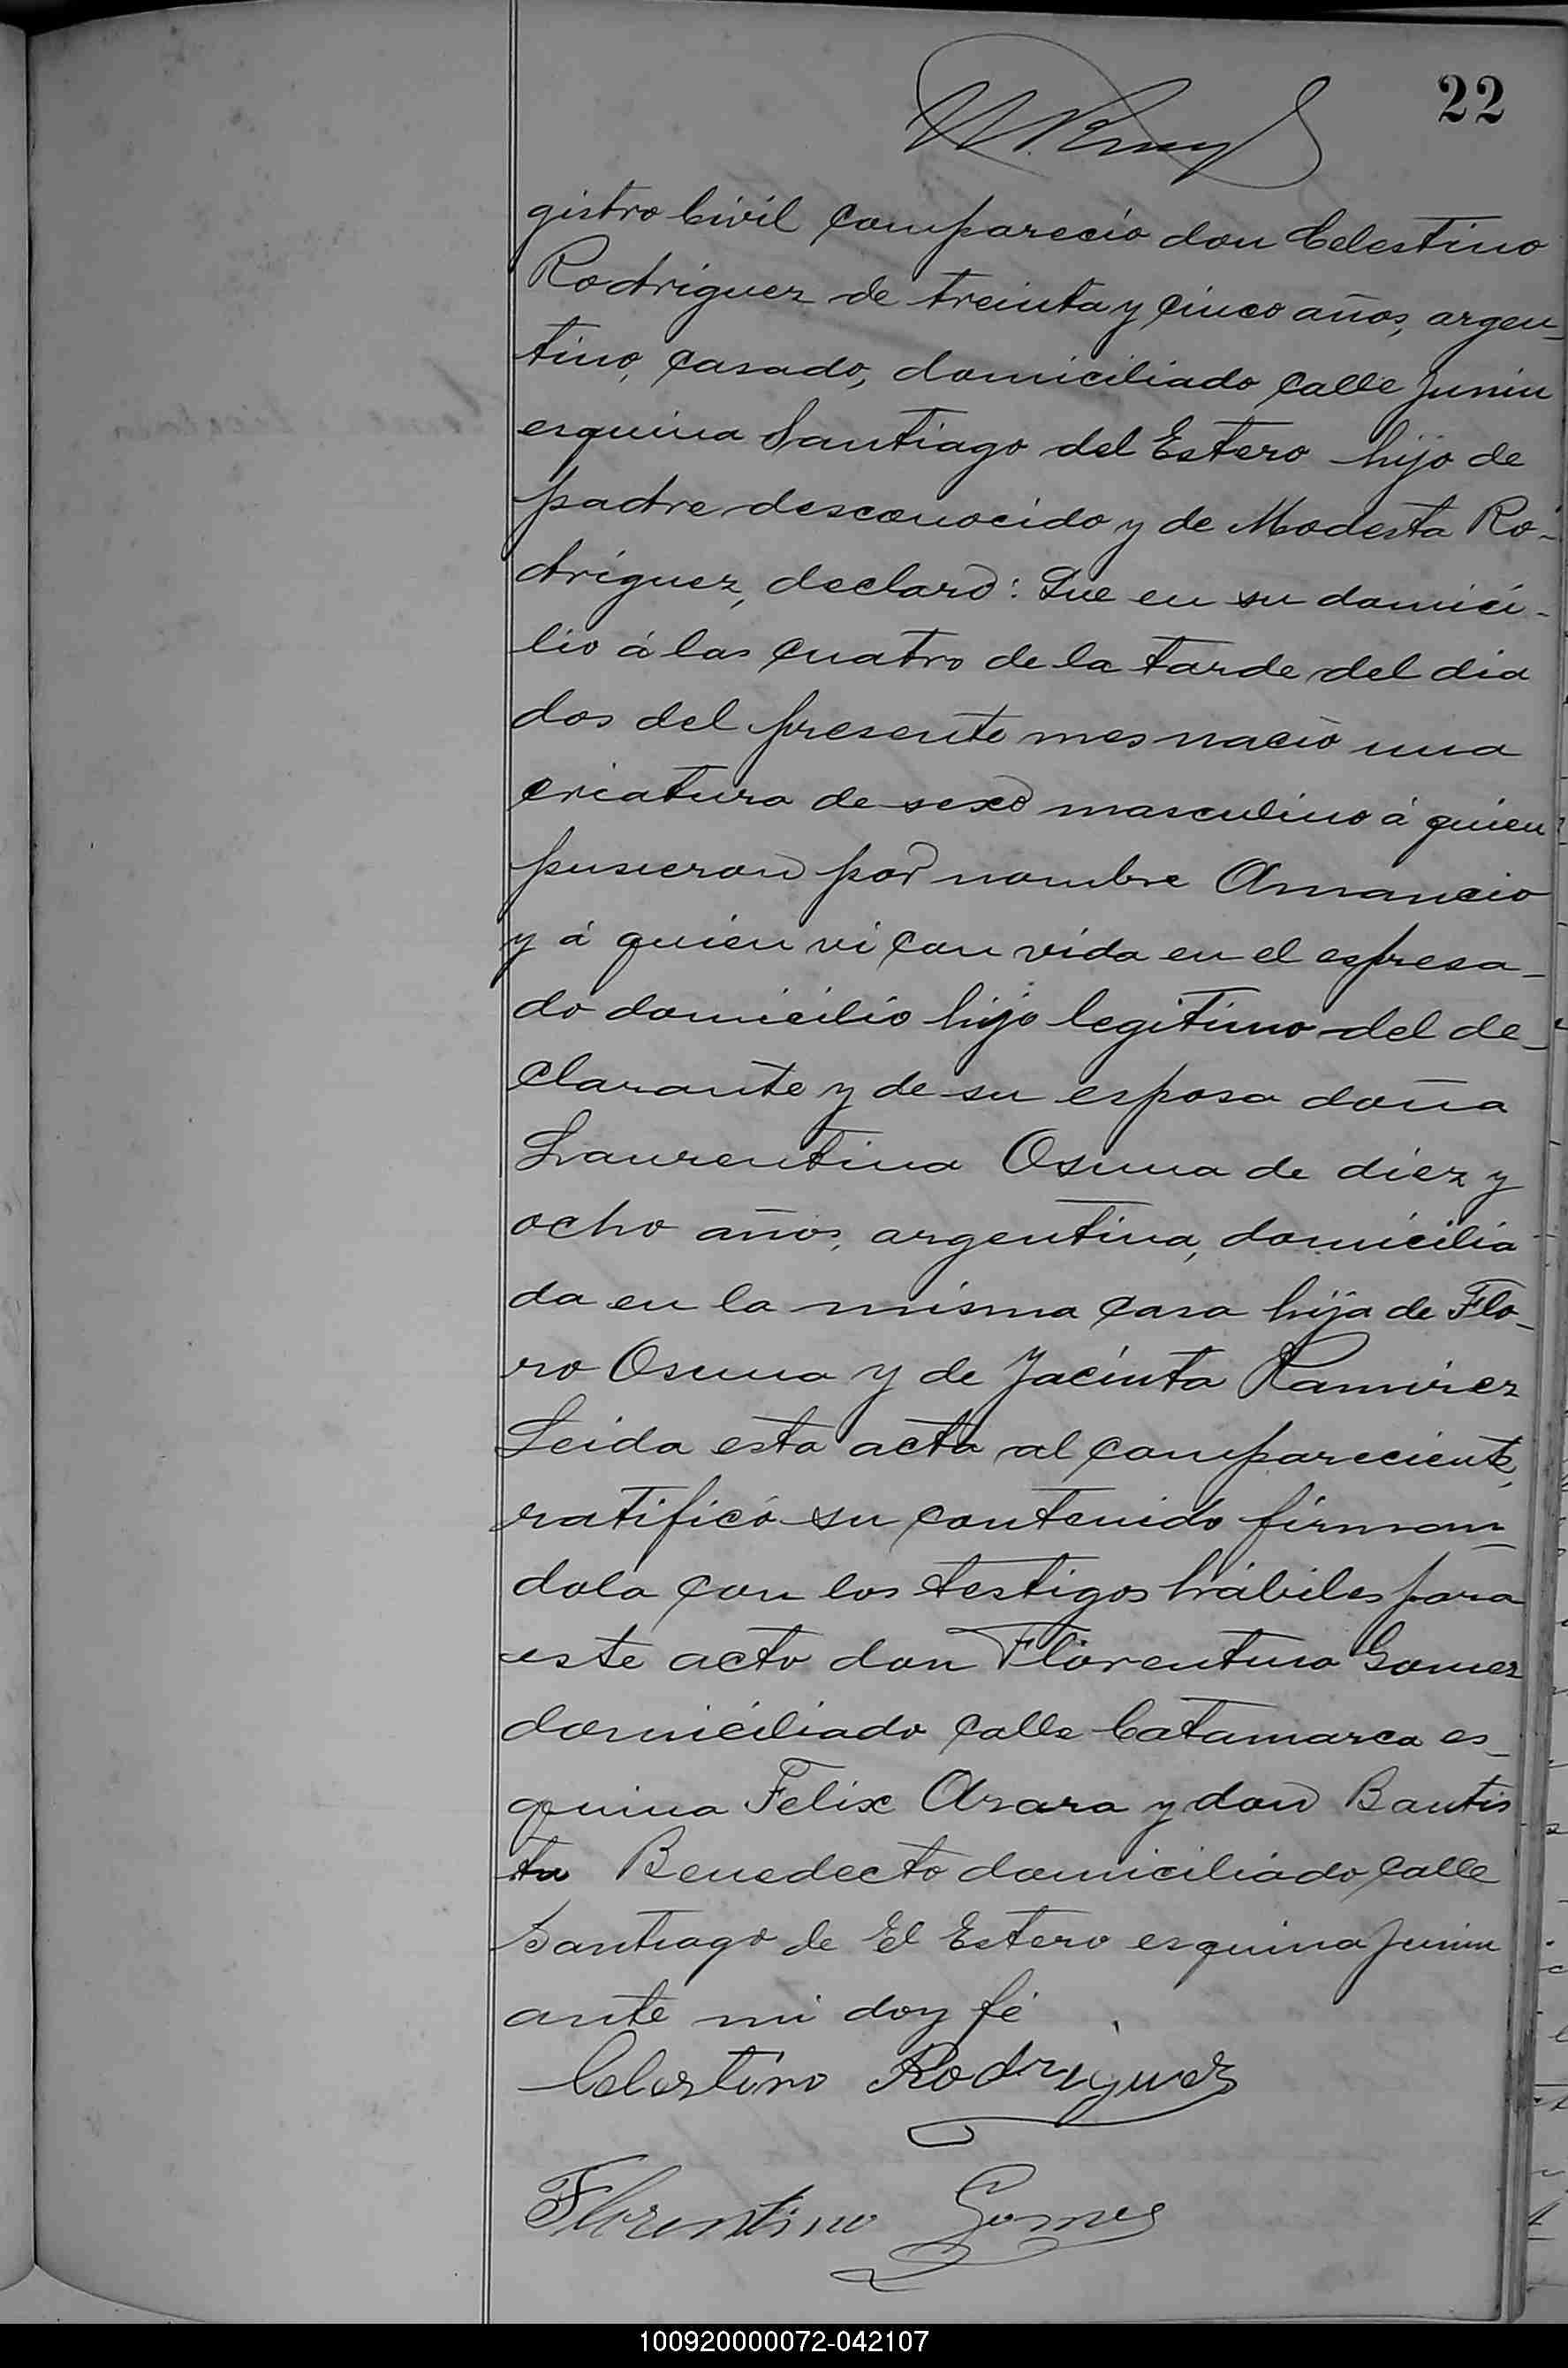 22
gistro Civil compareció don Celestino
Rodriguez de treinta y cinco años, argen-
tino, casado, domiciliado calle Junin
esquina Santiago del Estero hijo de
padre desconocido y de Modesta Ro-
driguez, declaró: Que en su domici-
lio á las cuatro de la tarde del dia
dos del presente mes nació una
criatura de sexo masculino á quien
pusieron por nombre Amancio
y á quien vi con vida en el espresa-
do domicilio hijo legitimo del de-
clarante y de su esposa doña
Laurentina Osuna de diez y
ocho años, argentina, domicilia
da en la misma casa hija de Flo-
ro Osuna y de Jacinta Ramirez
Leida esta acta al compareciente,
ratificó su contenido firman-
dola con los testigos hábiles para
este acto don Florentino Gomez
domiciliado calle Catamarca es-
quina Felix Azara y don Bautis
ta Benedecto domiciliado calle
Santiago de El Estero esquina Junin
ante mi doy fé
Celestino Rodriguez
Florentino Gomes
100920000072-042107